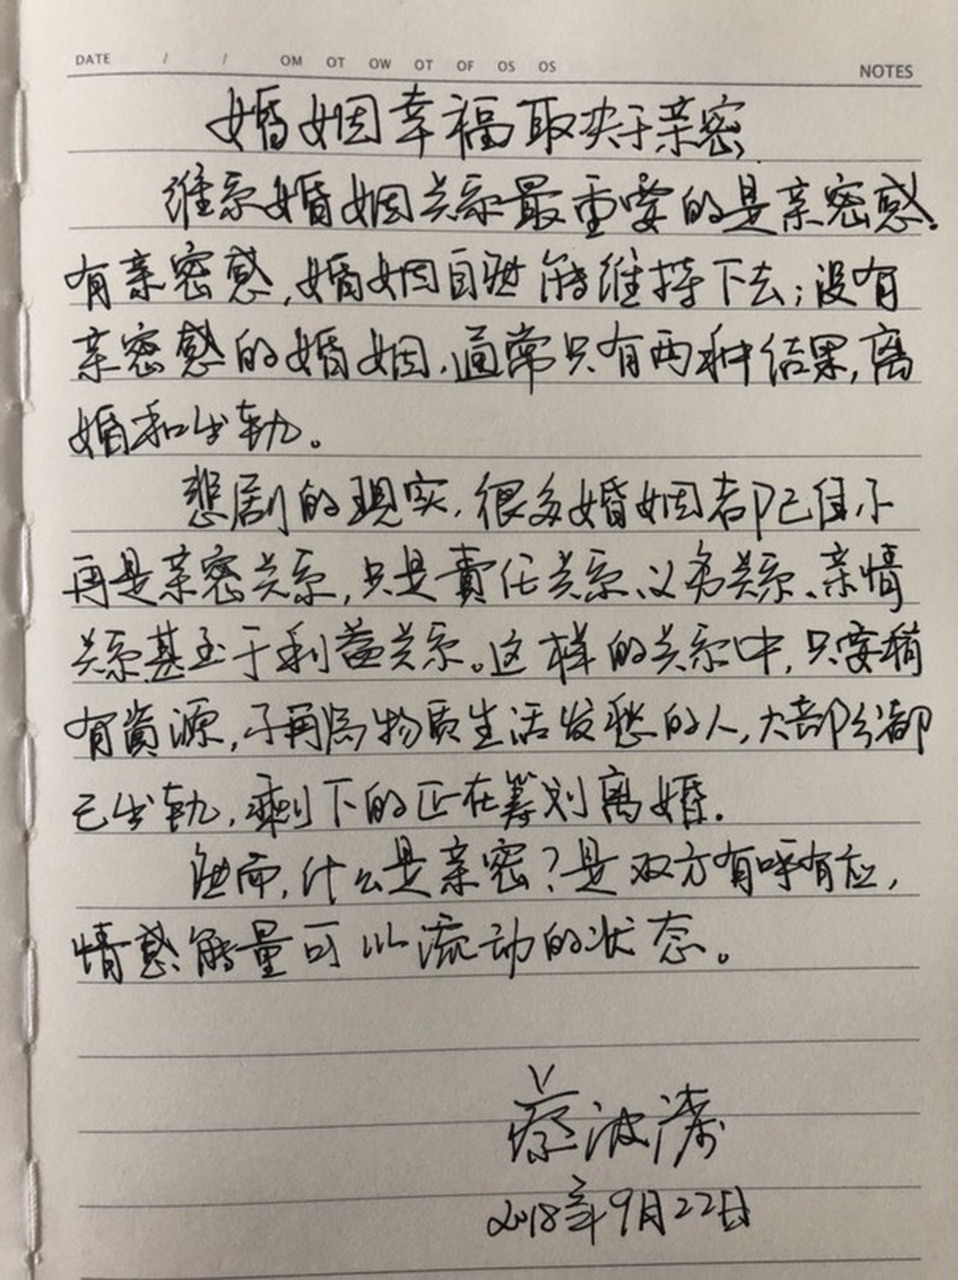 DATE / / OM OT OW OT OF OS OS
NOTES
婚姻幸福取决于亲密
维系婚姻关系最重要的是亲密感.
有亲密感,婚姻自然能维持下去;没有
亲密感的婚姻,通常只有两种结果,离
婚和出轨。
悲剧的现实,很多婚姻都已经不
再是亲密关系,只是責任关系、义务关系、亲情
关系甚至于利益关系。这样的关系中,只要稍
有資源,不再為物质生活发愁的人,大部分都
已出轨,剩下的正在筹划离婚.
然而,什么是亲密?是双方有呼有应,
情感能量可以流动的状态。
蔡波涛
2018年9月22日